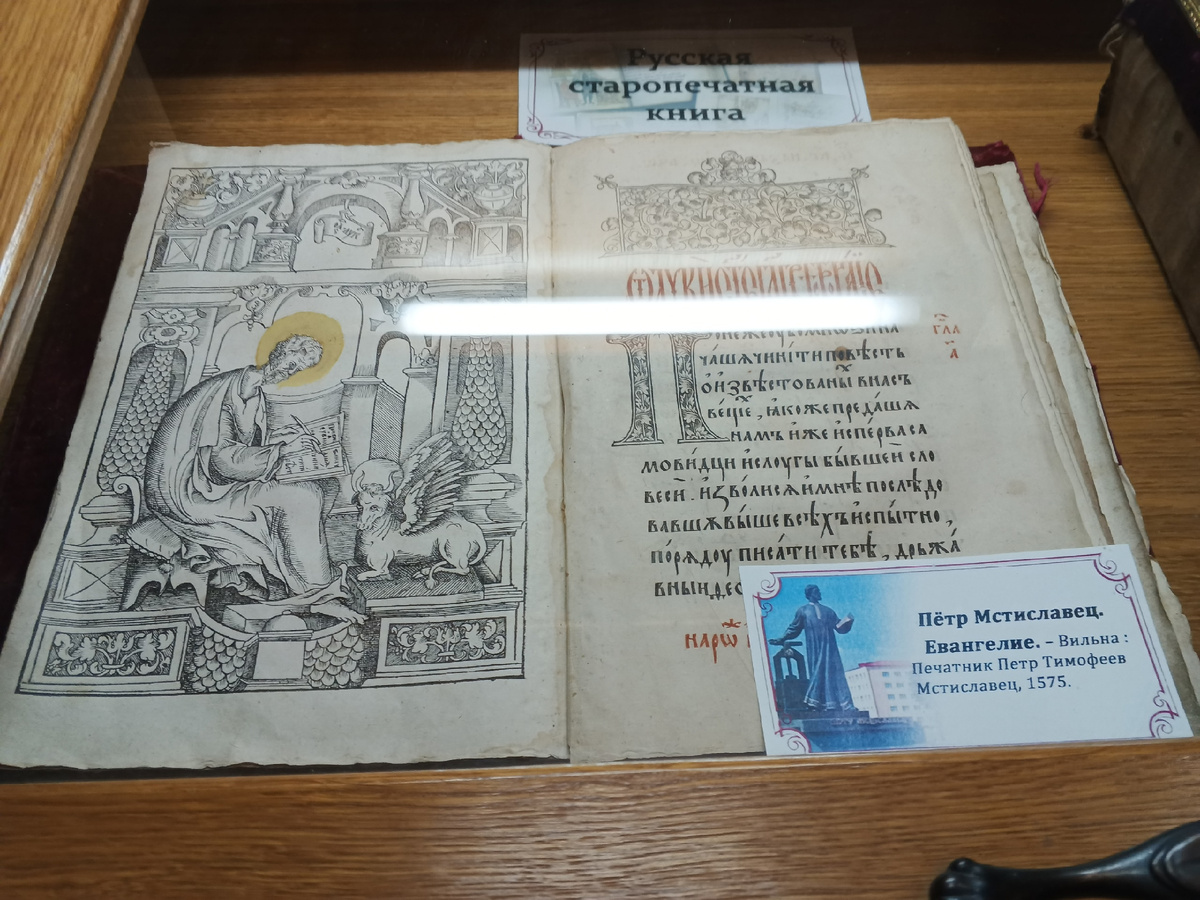 Русская
старопечатная
книга
ча́шѧ чини́ти по́вѣсть
ѡ҆ и҆звѣ́стованы́й вна́съ
ве́ще́, ꙗ҆́коже преда́шѧ
на́мъ и҆́же и҆спе́рва са
мови́дци и҆ слоугы̀ бы́вшей сло
весѝ . и҆зво́лисѧ и҆ мнѣ̀ послѣ́до
ва́вшꙋ вы́ше всѣ́хъ и҆спы́тно
по́рѧдоу писа́ти тебѣ̀ , дръжа́
вныи
гла
а҃
Пётр Мстиславец.
Евангелие. – Вильна :
Печатник Петр Тимофеев
Мстиславец, 1575.